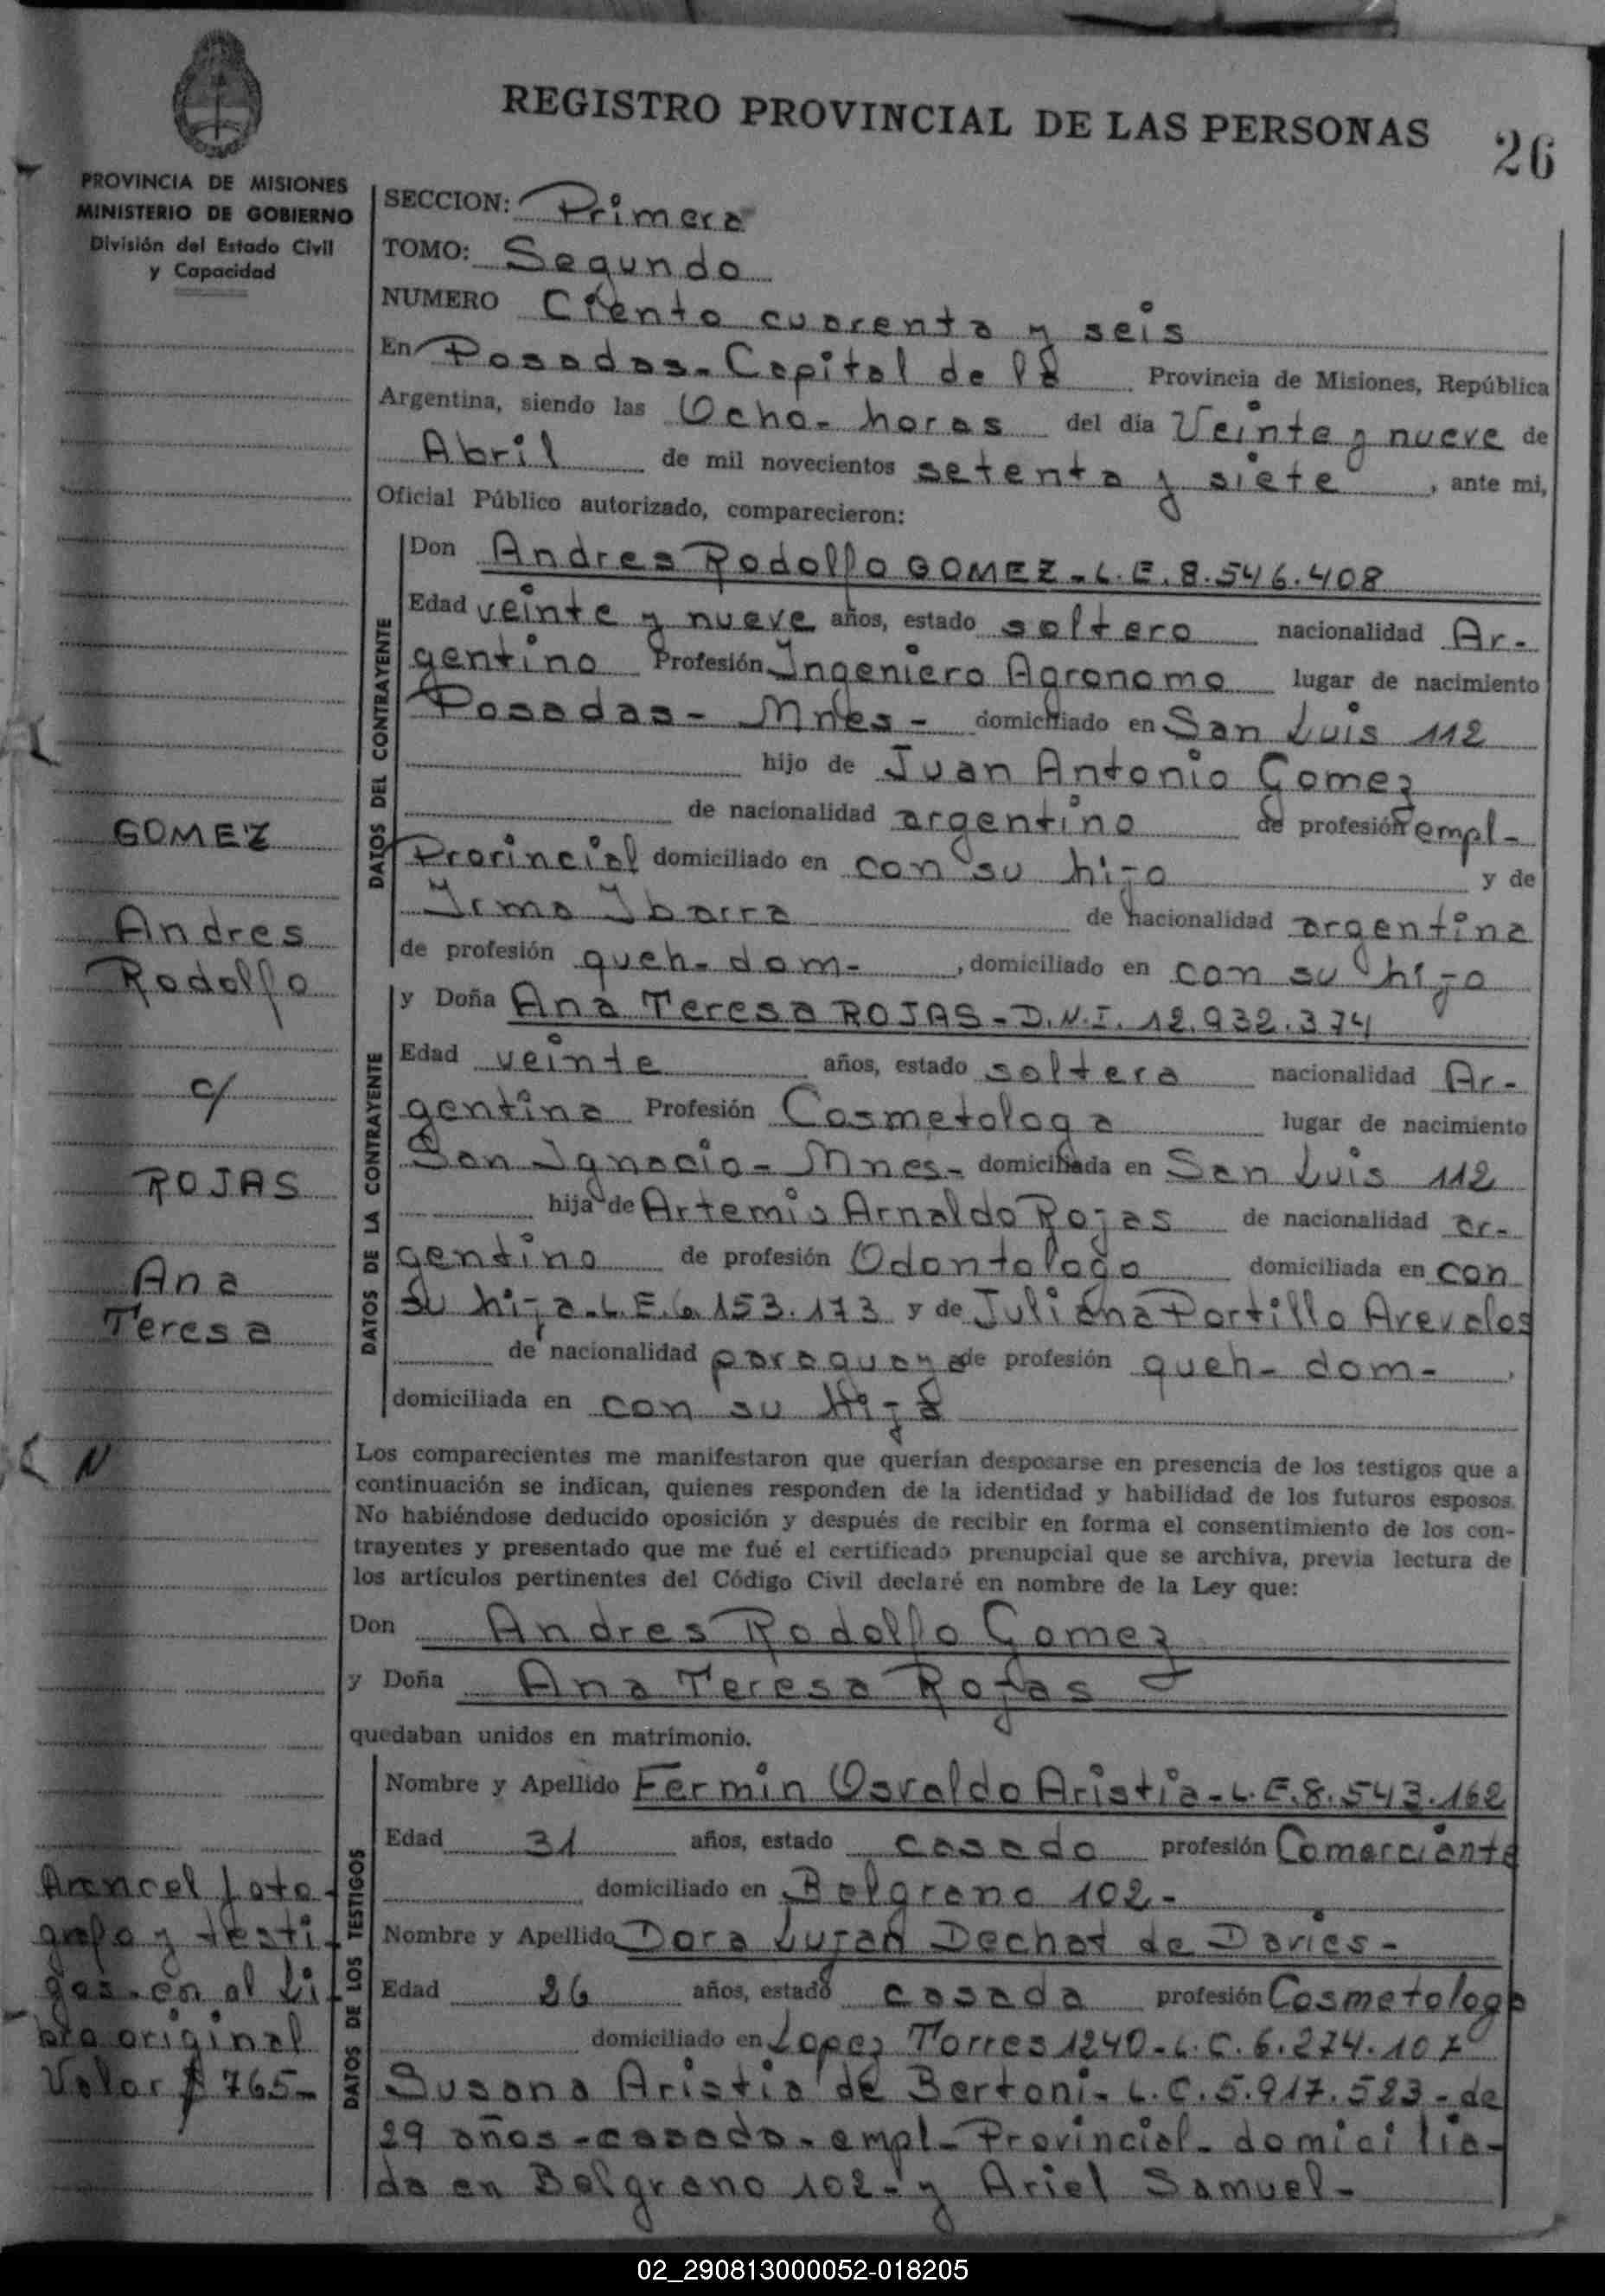 REGISTRO PROVINCIAL DE LAS PERSONAS
26
PROVINCIA DE MISIONES
MINISTERIO DE GOBIERNO
División del Estado Civil
y Capacidad
SECCION: Primera
TOMO: Segundo
NUMERO Ciento cuarenta y seis
En Posadas - Capital de la Provincia de Misiones, República
Argentina, siendo las Ocho - horas del día Veinte y nueve de
Abril de mil novecientos setenta y siete, ante mi,
Oficial Público autorizado, comparecieron:
DATOS DEL CONTRAYENTE
Don Andres Rodolfo GOMEZ - L.E. 8.546.408
Edad veinte y nueve años, estado soltero nacionalidad Ar-
gentino Profesión Ingeniero Agronomo lugar de nacimiento
Posadas - Mnes - domiciliado en San Luis 112
hijo de Juan Antonio Gomez
de nacionalidad argentino de profesión empl-
Provincial domiciliado en con su hijo y de
Irma Ibarra de nacionalidad argentina
de profesión queh - dom -, domiciliado en con su hijo
DATOS DE LA CONTRAYENTE
y Doña Ana Teresa ROJAS - D.N.I. 12.932.374
Edad veinte años, estado soltera nacionalidad Ar-
gentina Profesión Cosmetologa lugar de nacimiento
San Ignacio - Mnes - domiciliada en San Luis 112
hija de Artemio Arnaldo Rojas de nacionalidad ar-
gentino de profesión Odontologo domiciliada en con
su hija - L.E. 6.153.173 y de Juliana Portillo Arevalos
de nacionalidad paraguaya de profesión queh - dom -,
domiciliada en con su hija
Los comparecientes me manifestaron que querían desposarse en presencia de los testigos que a
continuación se indican, quienes responden de la identidad y habilidad de los futuros esposos.
No habiéndose deducido oposición y después de recibir en forma el consentimiento de los con-
trayentes y presentado que me fué el certificado prenupcial que se archiva, previa lectura de
los artículos pertinentes del Código Civil declaré en nombre de la Ley que:
Don Andres Rodolfo Gomez
y Doña Ana Teresa Rojas
quedaban unidos en matrimonio.
DATOS DE LOS TESTIGOS
Nombre y Apellido Fermin Osvaldo Aristia - L.E. 8.543.162
Edad 31 años, estado casado profesión Comerciante
domiciliado en Belgrano 102 -
Nombre y Apellido Dora Lujan Dechat de Davies -
Edad 26 años, estado casada profesión Cosmetologa
domiciliado en Lopez Torres 1240 - L.C. 6.274.107
Susana Aristia de Bertoni - L.C. 5.917.523 - de
29 años - casada - empl - Provincial - domicilia-
da en Belgrano 102 - y Ariel Samuel -
GOMEZ
Andres
Rodolfo
c/
ROJAS
Ana
Teresa
N
Arancel foto-
grafo y testi-
gos - en el Li-
bro original
Valor $ 765 -
02_290813000052-018205